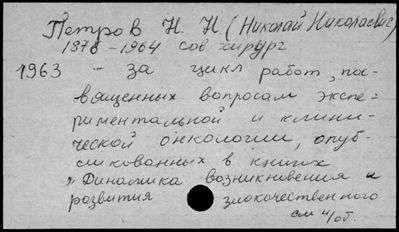 Петров Н. Н. (Николай Николаевич)
1876-1964 сов. хирург
1963 - за цикл работ, пос-
вященных вопросам экспе-
риментальной и клини-
ческой онкологии, опуб-
ликованных в книгах
"Динамика возникновения и
розвития злокачественного
см н/об.